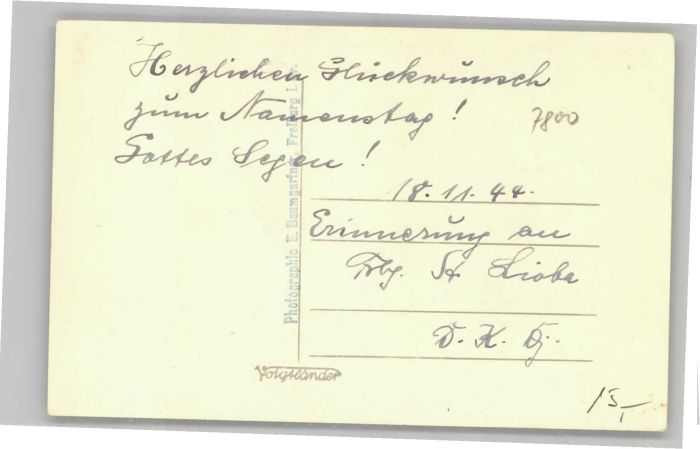 Herzlichen Glückwunsch
zum Namenstag!
Gottes Segen!
7800
18.11.44.
Erinnerung an
Frbg. St Lioba
D. K.
Photographie E. Baumgartner, Freiburg i. Br.
Voigtländer
15,-